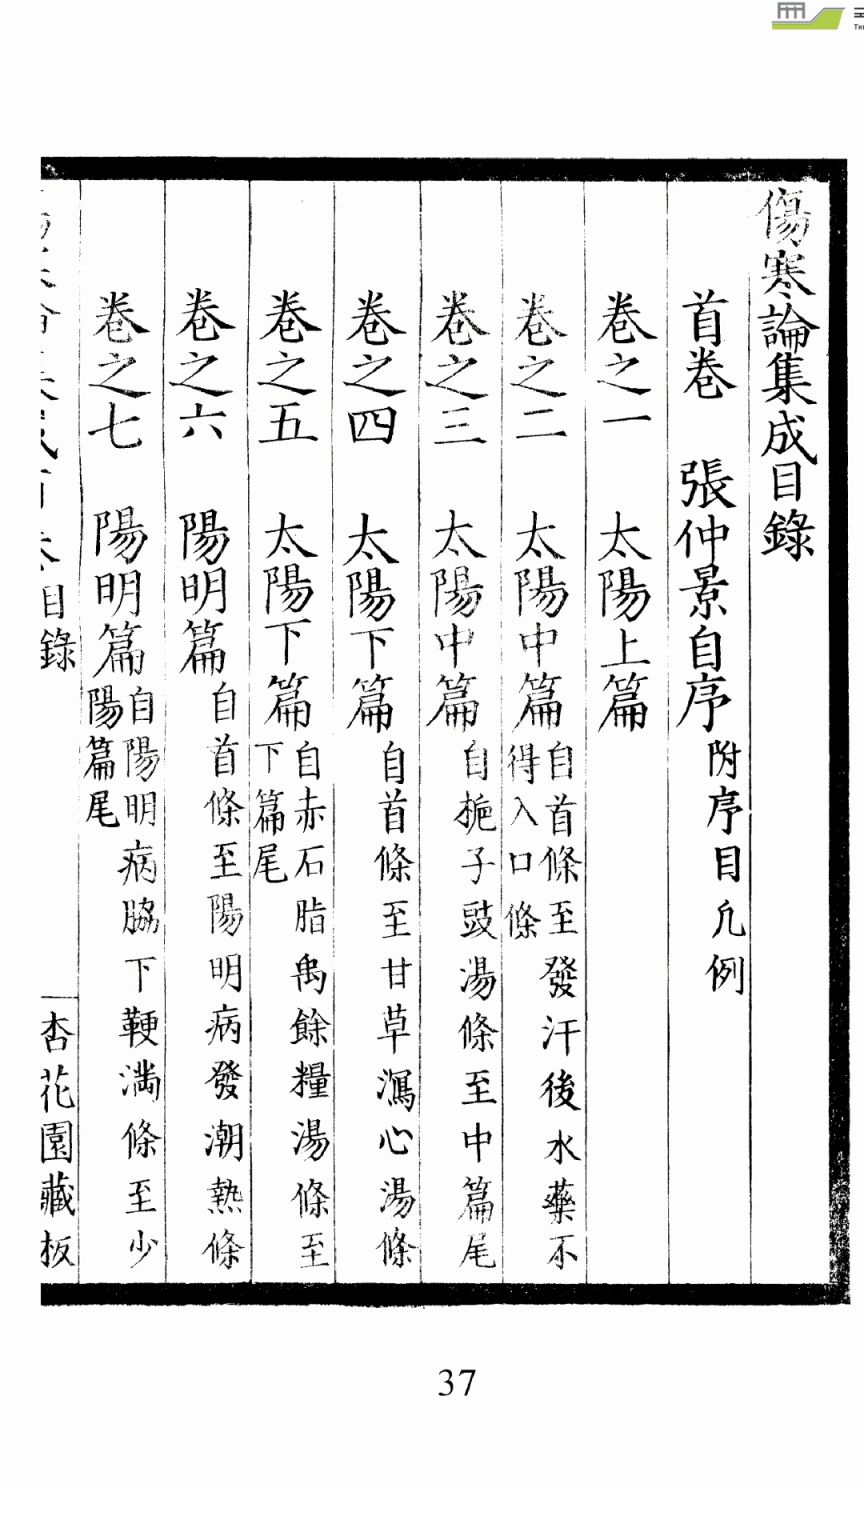 傷寒論集成目錄
首卷 張仲景自序 附序目凡例
卷之一 太陽上篇
卷之二 太陽中篇 自首條至發汗後水藥不
得入口條
卷之三 太陽中篇 自梔子豉湯條至中篇尾
卷之四 太陽下篇 自首條至甘草瀉心湯條
卷之五 太陽下篇 自赤石脂禹餘糧湯條至
下篇尾
卷之六 陽明篇 自首條至陽明病發潮熱條
卷之七 陽明篇 自陽明病脇下鞕滿條至少
陽篇尾
目錄 一 杏花園藏板
37